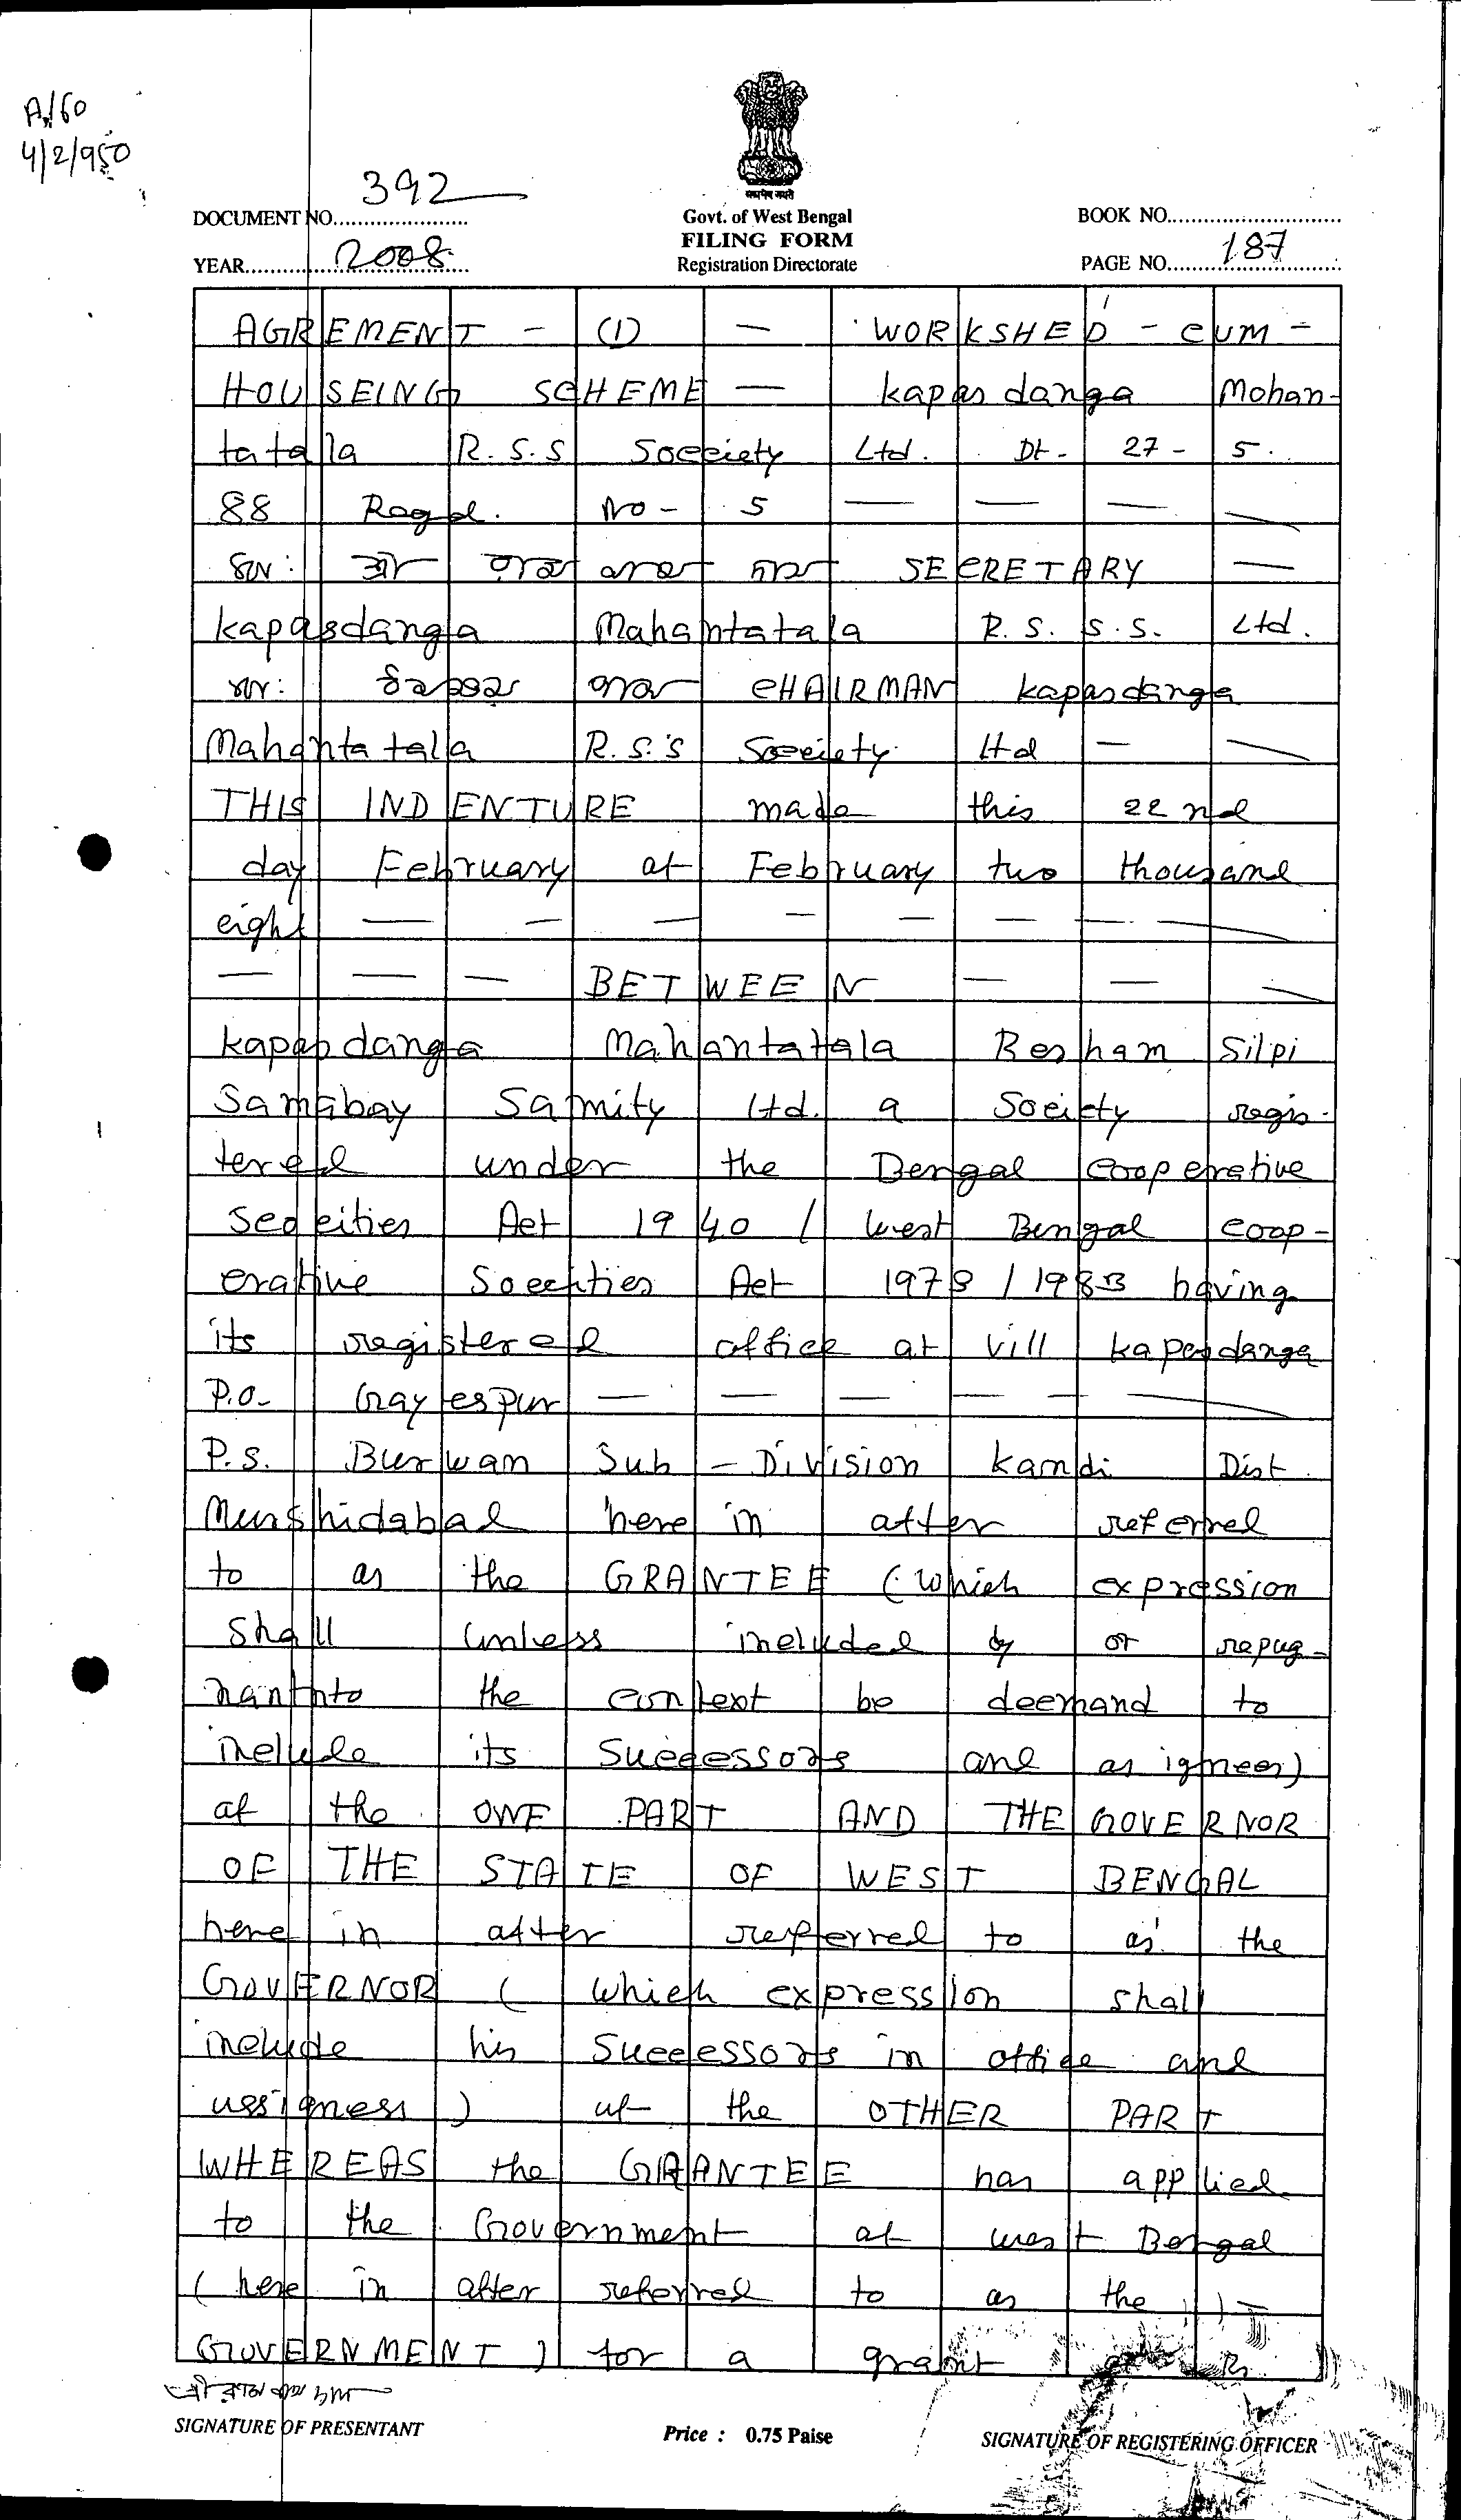 A/60
4/2/950
392
DOCUMENT NO.....................
Govt. of West Bengal
BOOK NO...........................
FILING FORM
YEAR.................2008.................
Registration Directorate
PAGE NO...........187...............
AGREMENT - (1) — WORKSHED - CUM -
HOUSEING SCHEME — Kapasdanga Mohan-
tatala R.S.S Socciety Ltd. Dt- 27- 5.
88 Ragd. No- 5 — — — —
SECRETARY —
Kapasdanga Mahantatala R. S. S. S. Ltd.
CHAIRMAN Kapasdanga
Mahantatala R.S.S Soceiety Ltd — —
THIS INDENTURE made this 22nd
day February of February two thousand
eight — — — — — — — —
— — — BETWEEN — — —
Kapasdanga Mahantatala Resham Silpi
Samabay Samity Ltd. a Society regis-
tered under the Bengal Cooperative
Soceities Act 1940 / West Bengal coop-
erative Soceities Act 1973 / 1983 having
its registered office at vill Kapasdanga
P.O- Gaytespur — — — — — —
P.S. Burwan Sub - Division Kandi Dist
Murshidabad here in after referred
to as the GRANTEE (which expression
shall unless included by or repug-
nantnto the context be deemand to
include its Successors and as ignees)
of the ONE PART AND THE GOVERNOR
OF THE STATE OF WEST BENGAL
here in after referred to as the
GOVERNOR ( which expression shall
include his Successors in office and
assigness ) of the OTHER PART
WHEREAS the GRANTEE has applied
to the Government of west Bengal
( here in after referred to as the )-
GOVERNMENT ) for a grant
SIGNATURE OF PRESENTANT
Price : 0.75 Paise
SIGNATURE OF REGISTERING OFFICER